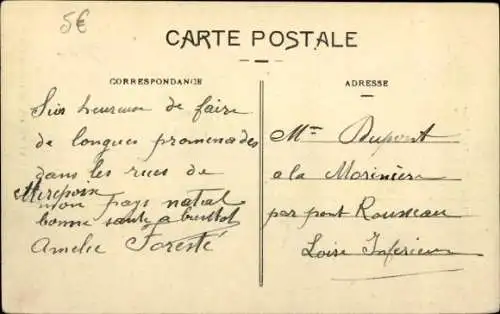 5€
CARTE POSTALE
CORRESPONDANCE
ADRESSE
Suis heureuse de faire
de longues promenades
dans les rues de
Mirepoix
mon pays natal
bonne santé a bientot
Amelie Foresté
Mme Dupont
a la Morinière
par pont Rousseau
Loire Inferieure